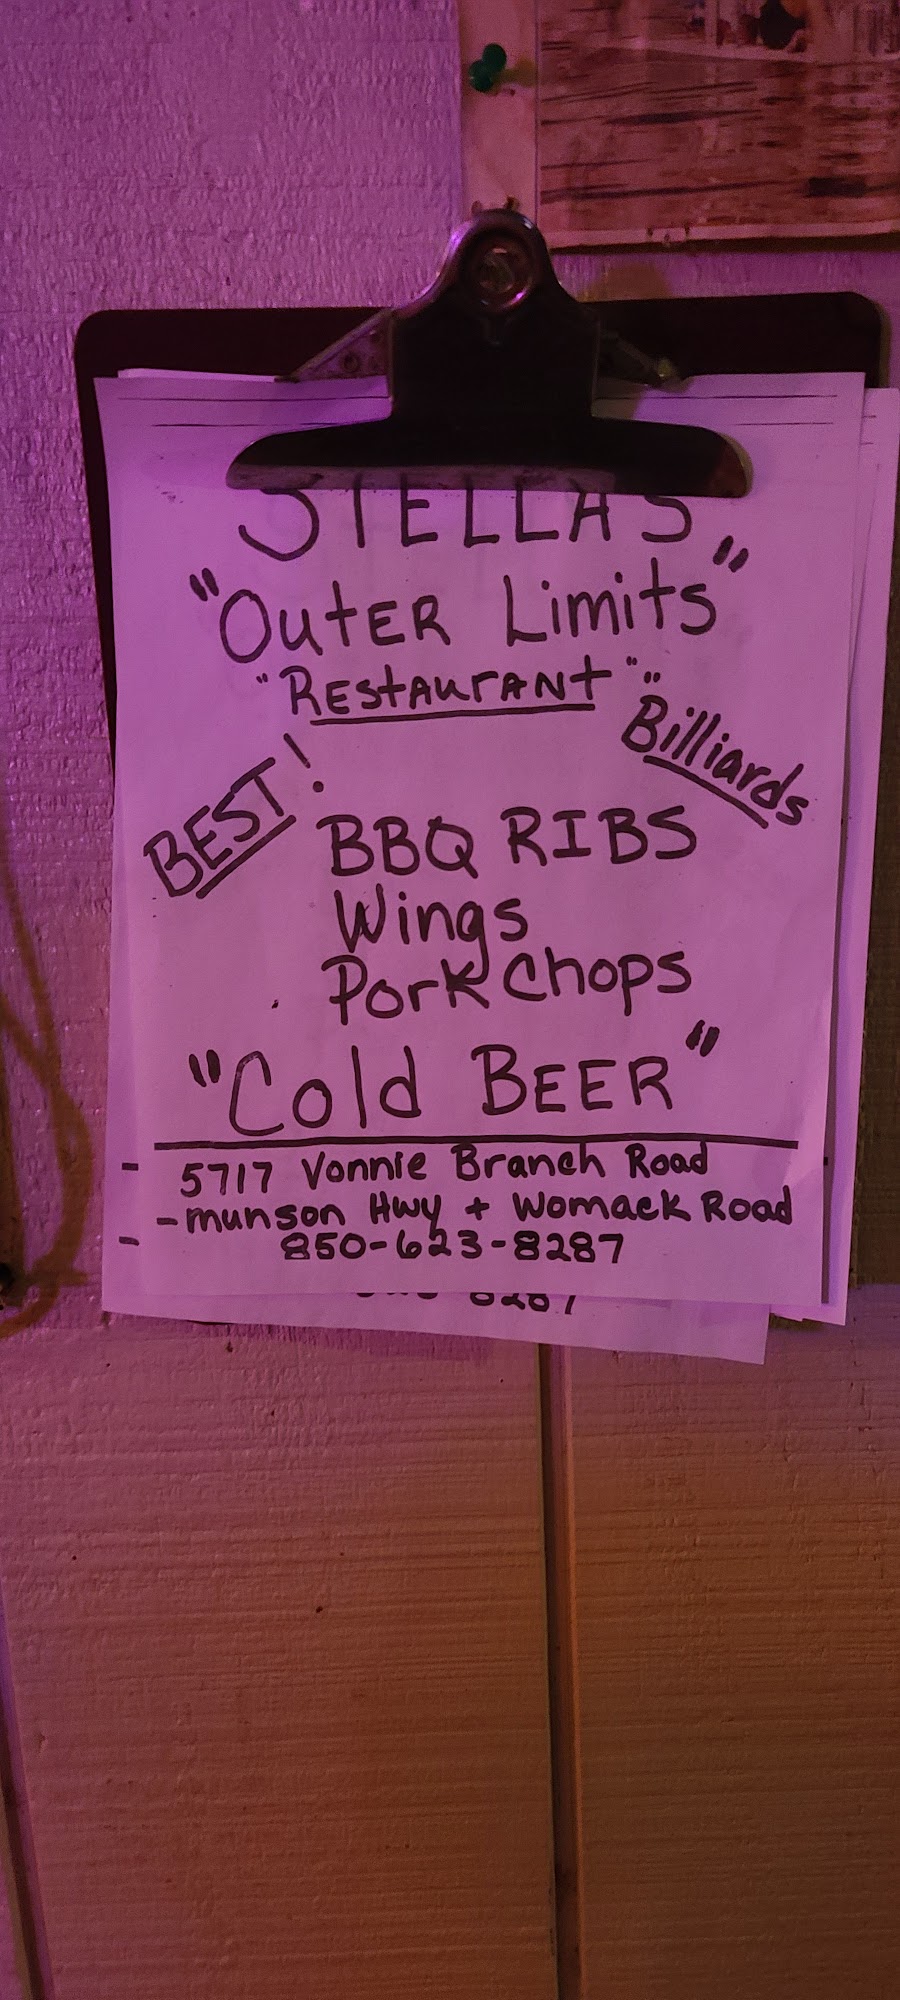 STELLAS
"OutER Limits"
"REStAurANt"
Billiards
BEST!
BBQ RIBS
Wings
Pork Chops
"Cold BEER"
- 5717 Vonnie Branch Road
-munson Hwy + Womack Road
- 850-623-8287
8287